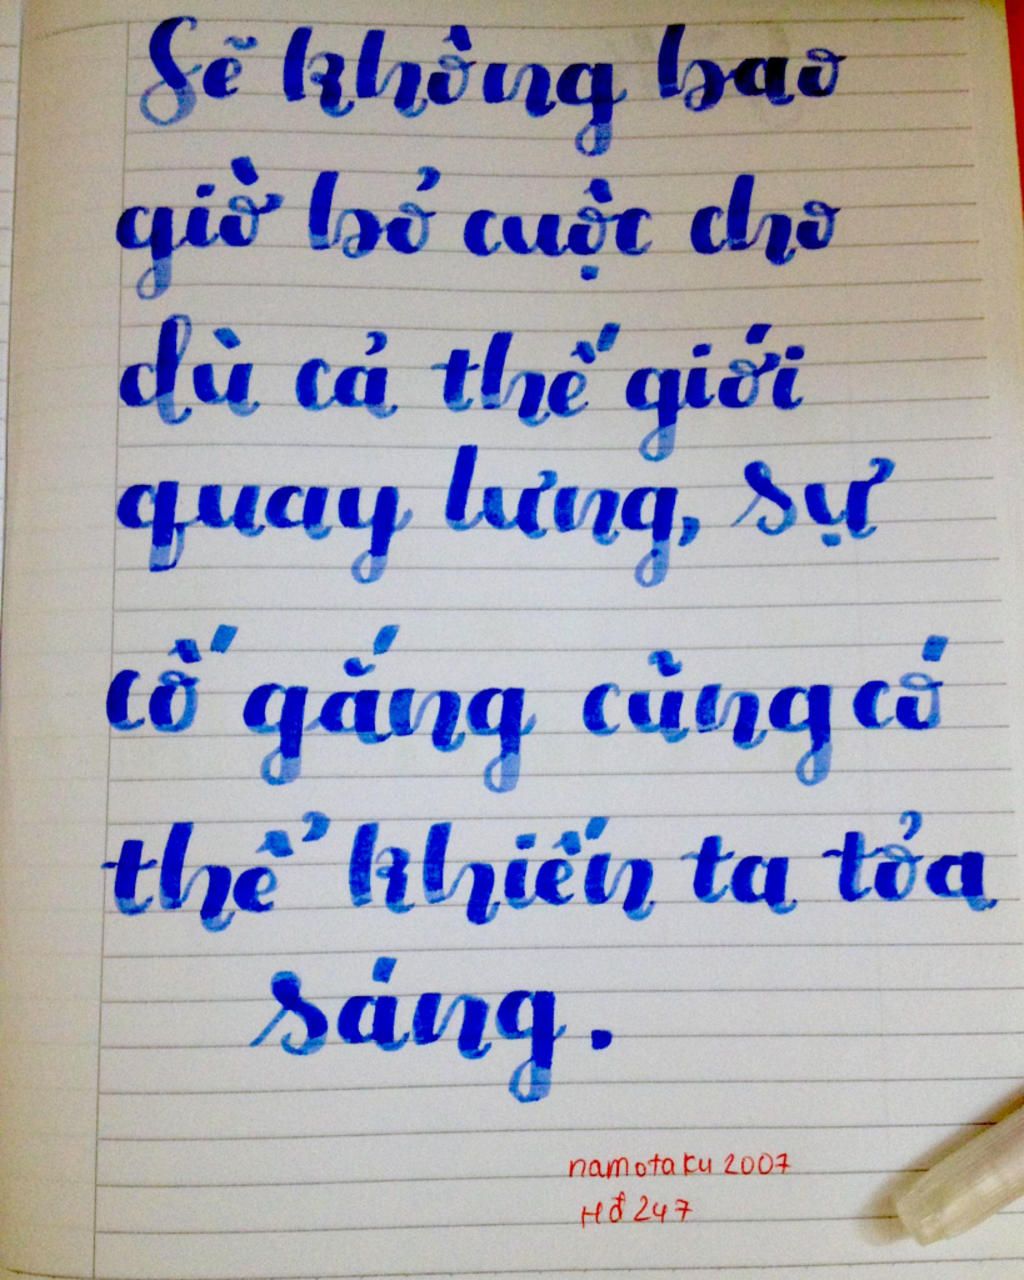 Sẽ không bao
giờ bỏ cuộc cho
dù cả thế giới
quay lưng, sự
cố gắng cũng có
thể khiến ta tỏa
sáng.
namotaku 2007
Hđ 247